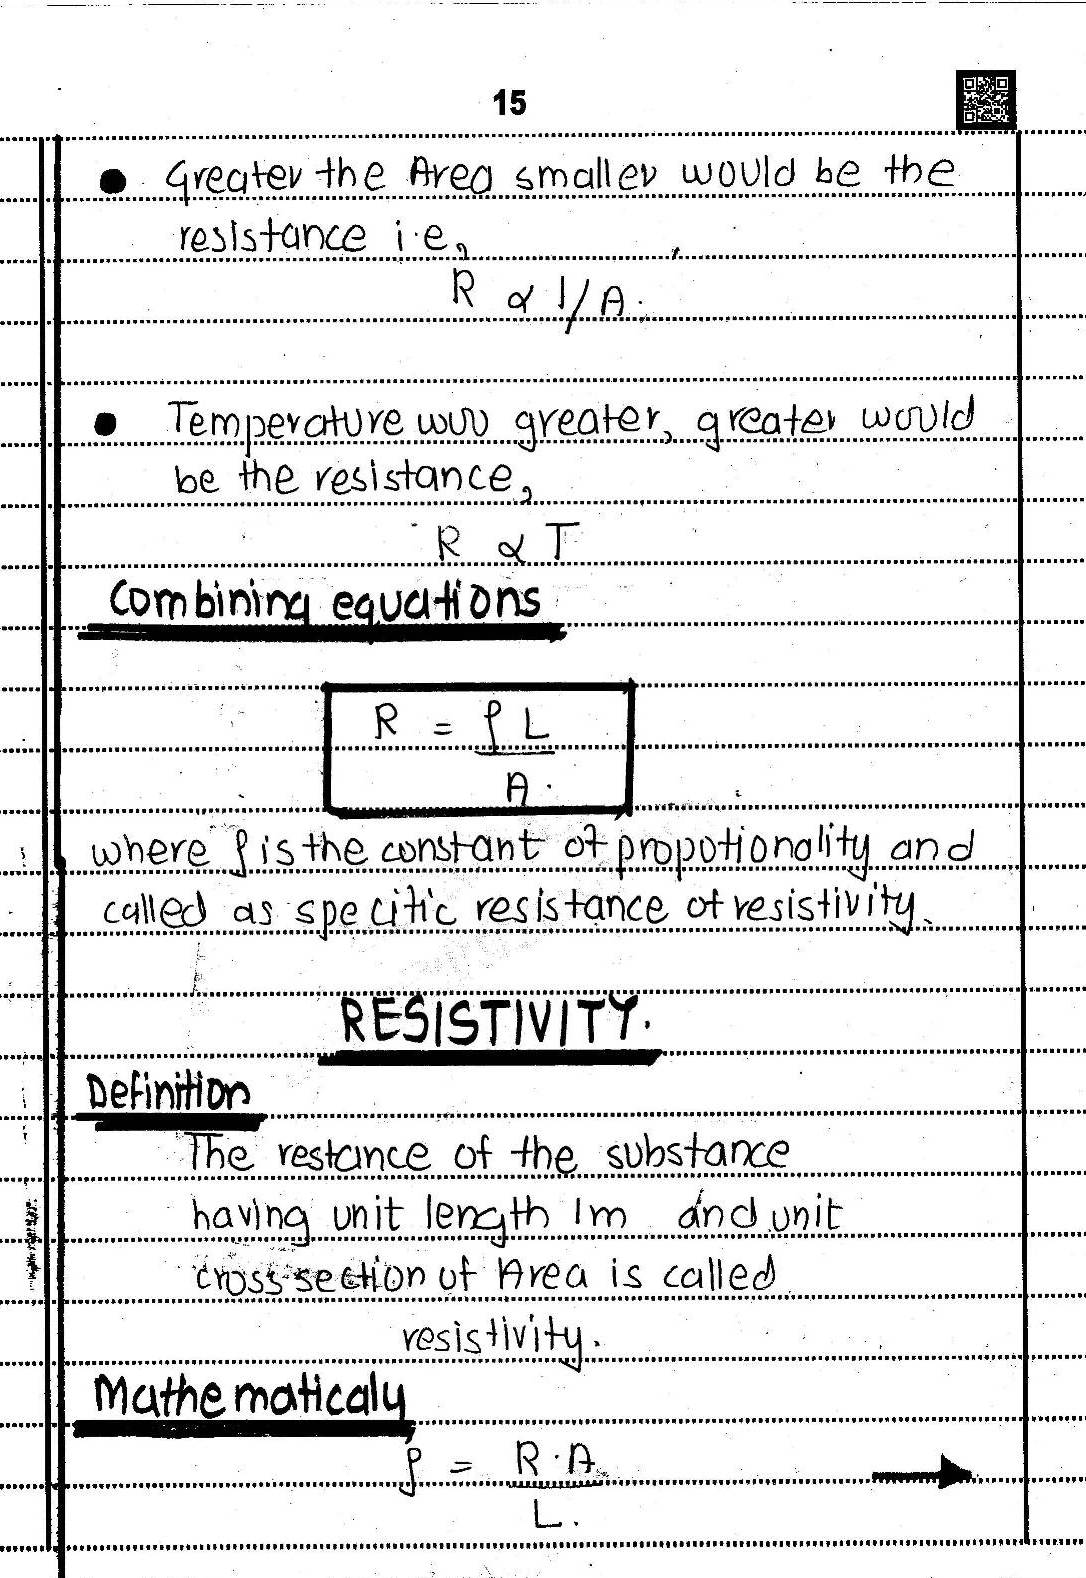 15
Greater the Area smaller would be the
resistance i.e,
R ∝ 1/A.
Temperature greater, greater would
be the resistance,
R ∝ T
Combining equations
R = ρ L
A.
where ρ is the constant of propotionality and
called as specific resistance of resistivity.
RESISTIVITY.
Definition
The restance of the substance
having unit length 1m and unit
cross section of Area is called
resistivity.
Mathematicaly
ρ = R . A
L.